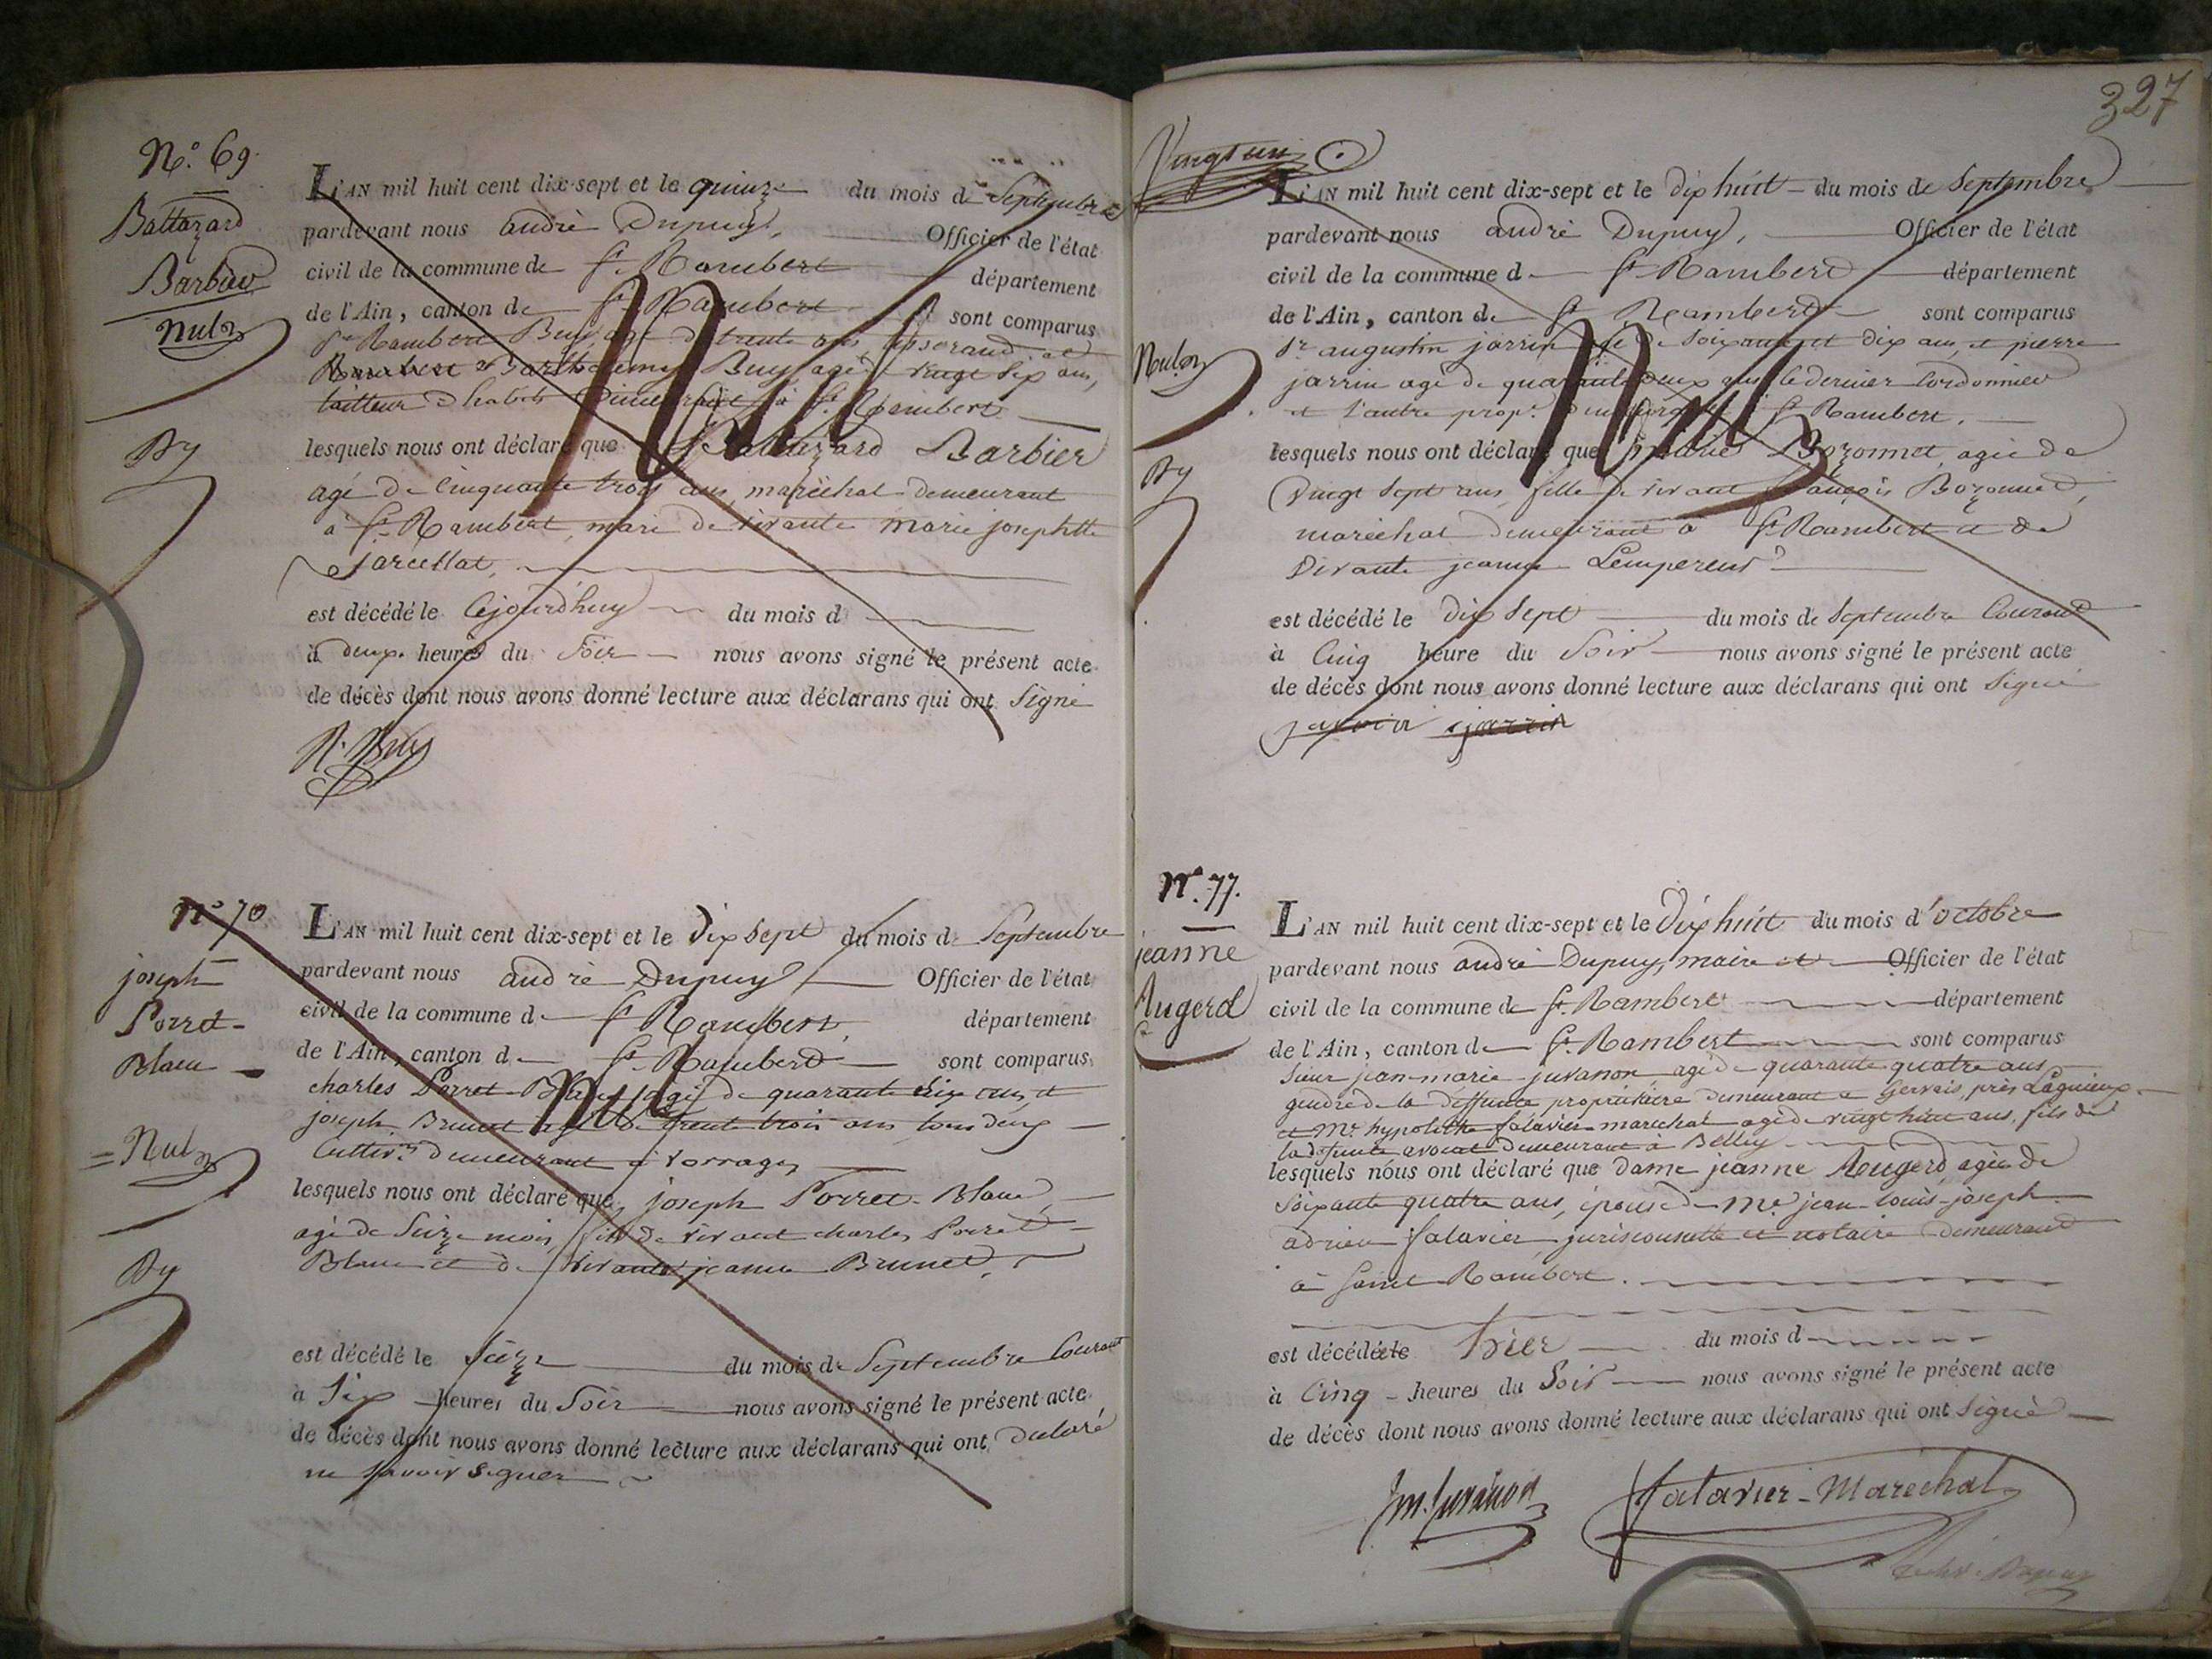 N.º 69.
Battazard
Barbier
Nul
Dy
L'AN mil huit cent dix-sept et le quinze du mois de Septembre
pardevant nous andré Dupuy, Officier de l'état
civil de la commune de St Rambert département
de l'Ain, canton de St Rambert sont comparus
Rambert Buy, agé de trente ans tisserand et
Barthelemy Buy agé vingt six ans,
tailleur d'habits Demeurant à St Rambert
lesquels nous ont déclaré que Battazard Barbier
agé de Cinquante trois ans maréchal demeurant
à St Rambert, mari de vivante marie josephtte
Jarcellat,
est décédé le Cejourdhuy du mois d
à deux heures du Soir nous avons signé le présent acte
de décès dont nous avons donné lecture aux déclarans qui ont Signé
R. Buy
Nº 70
joseph
Porret
Blanc
Nul
Dy
L'AN mil huit cent dix-sept et le Dix Sept du mois de Septembre
pardevant nous andré Dupuy Officier de l'état
civil de la commune d St Rambert, département
de l'Ain, canton d St Rambert sont comparus
charles Porret-Blanc agé de quarante ans et
joseph Brunet agé de trente trois ans tous deux
Cultivrs demeurant à
lesquels nous ont déclaré que joseph Porret-Blanc
agé de Seize mois, fils de vivant charles Porret
Blanc et de vivante jeanne Brunet,
est décédé le Seize du mois de Septembre Courant
à Six heures du Soir nous avons signé le présent acte
de décès dont nous avons donné lecture aux déclarans qui ont déclaré
ne savoir signer
327
Vingt un
Nul
Dy
L'AN mil huit cent dix-sept et le dix huit du mois de Septembre
pardevant nous andré Dupuy, Officier de l'état
civil de la commune d St Rambert département
de l'Ain, canton de St Rambert sont comparus
Sr augustin jarrin agé de Soixante et dix ans, et pierre
jarrin agé de quarante deux ans le dernier Cordonnier
et l'autre propre. demeurant à St Rambert.
lesquels nous ont déclaré que marie Bozonnet, agée de
Vingt Sept ans, fille de vivant françois Bozonnet,
maréchal demeurant à St Rambert et de
Vivante jeanne Lempereur
est décédé le Dix Sept du mois de Septembre Courant
à Cinq heure du Soir nous avons signé le présent acte
de décès dont nous avons donné lecture aux déclarans qui ont Signé
jarrin jarrin
Nº. 77.
jeanne
Augerd
L'AN mil huit cent dix-sept et le Dix huit du mois d'octobre
pardevant nous andré Dupuy, maire et Officier de l'état
civil de la commune de St. Rambert département
de l'Ain, canton de St. Rambert sont comparus
Sieur jean-marie juvanon agé de quarante quatre ans
gendre de la deffunte propriétaire demeurant a Gervais, près Lagnieux
et Mr hypolithe falavier-maréchal agé de vingt huit ans, fils de
la defunte avocat demeurant à Belley
lesquels nous ont déclaré que dame jeanne Augerd, agée de
Soixante quatre ans, épouse de Mr. jean-louis-joseph
adrien falavier, jurisconsulte et notaire demeurant
à Saint Rambert.
est décédée hier du mois d
à Cinq heures du Soir nous avons signé le présent acte
de décès dont nous avons donné lecture aux déclarans qui ont Signé
Jm. Juvanon falavier-Maréchal
andré Dupuy